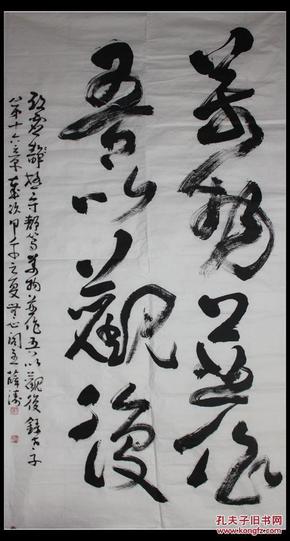 萬物並作
吾以觀後
致虛極守靜篤萬物並作吾以觀後錄老子
第十六章歲次甲午之夏
薛濤
孔夫子旧书网